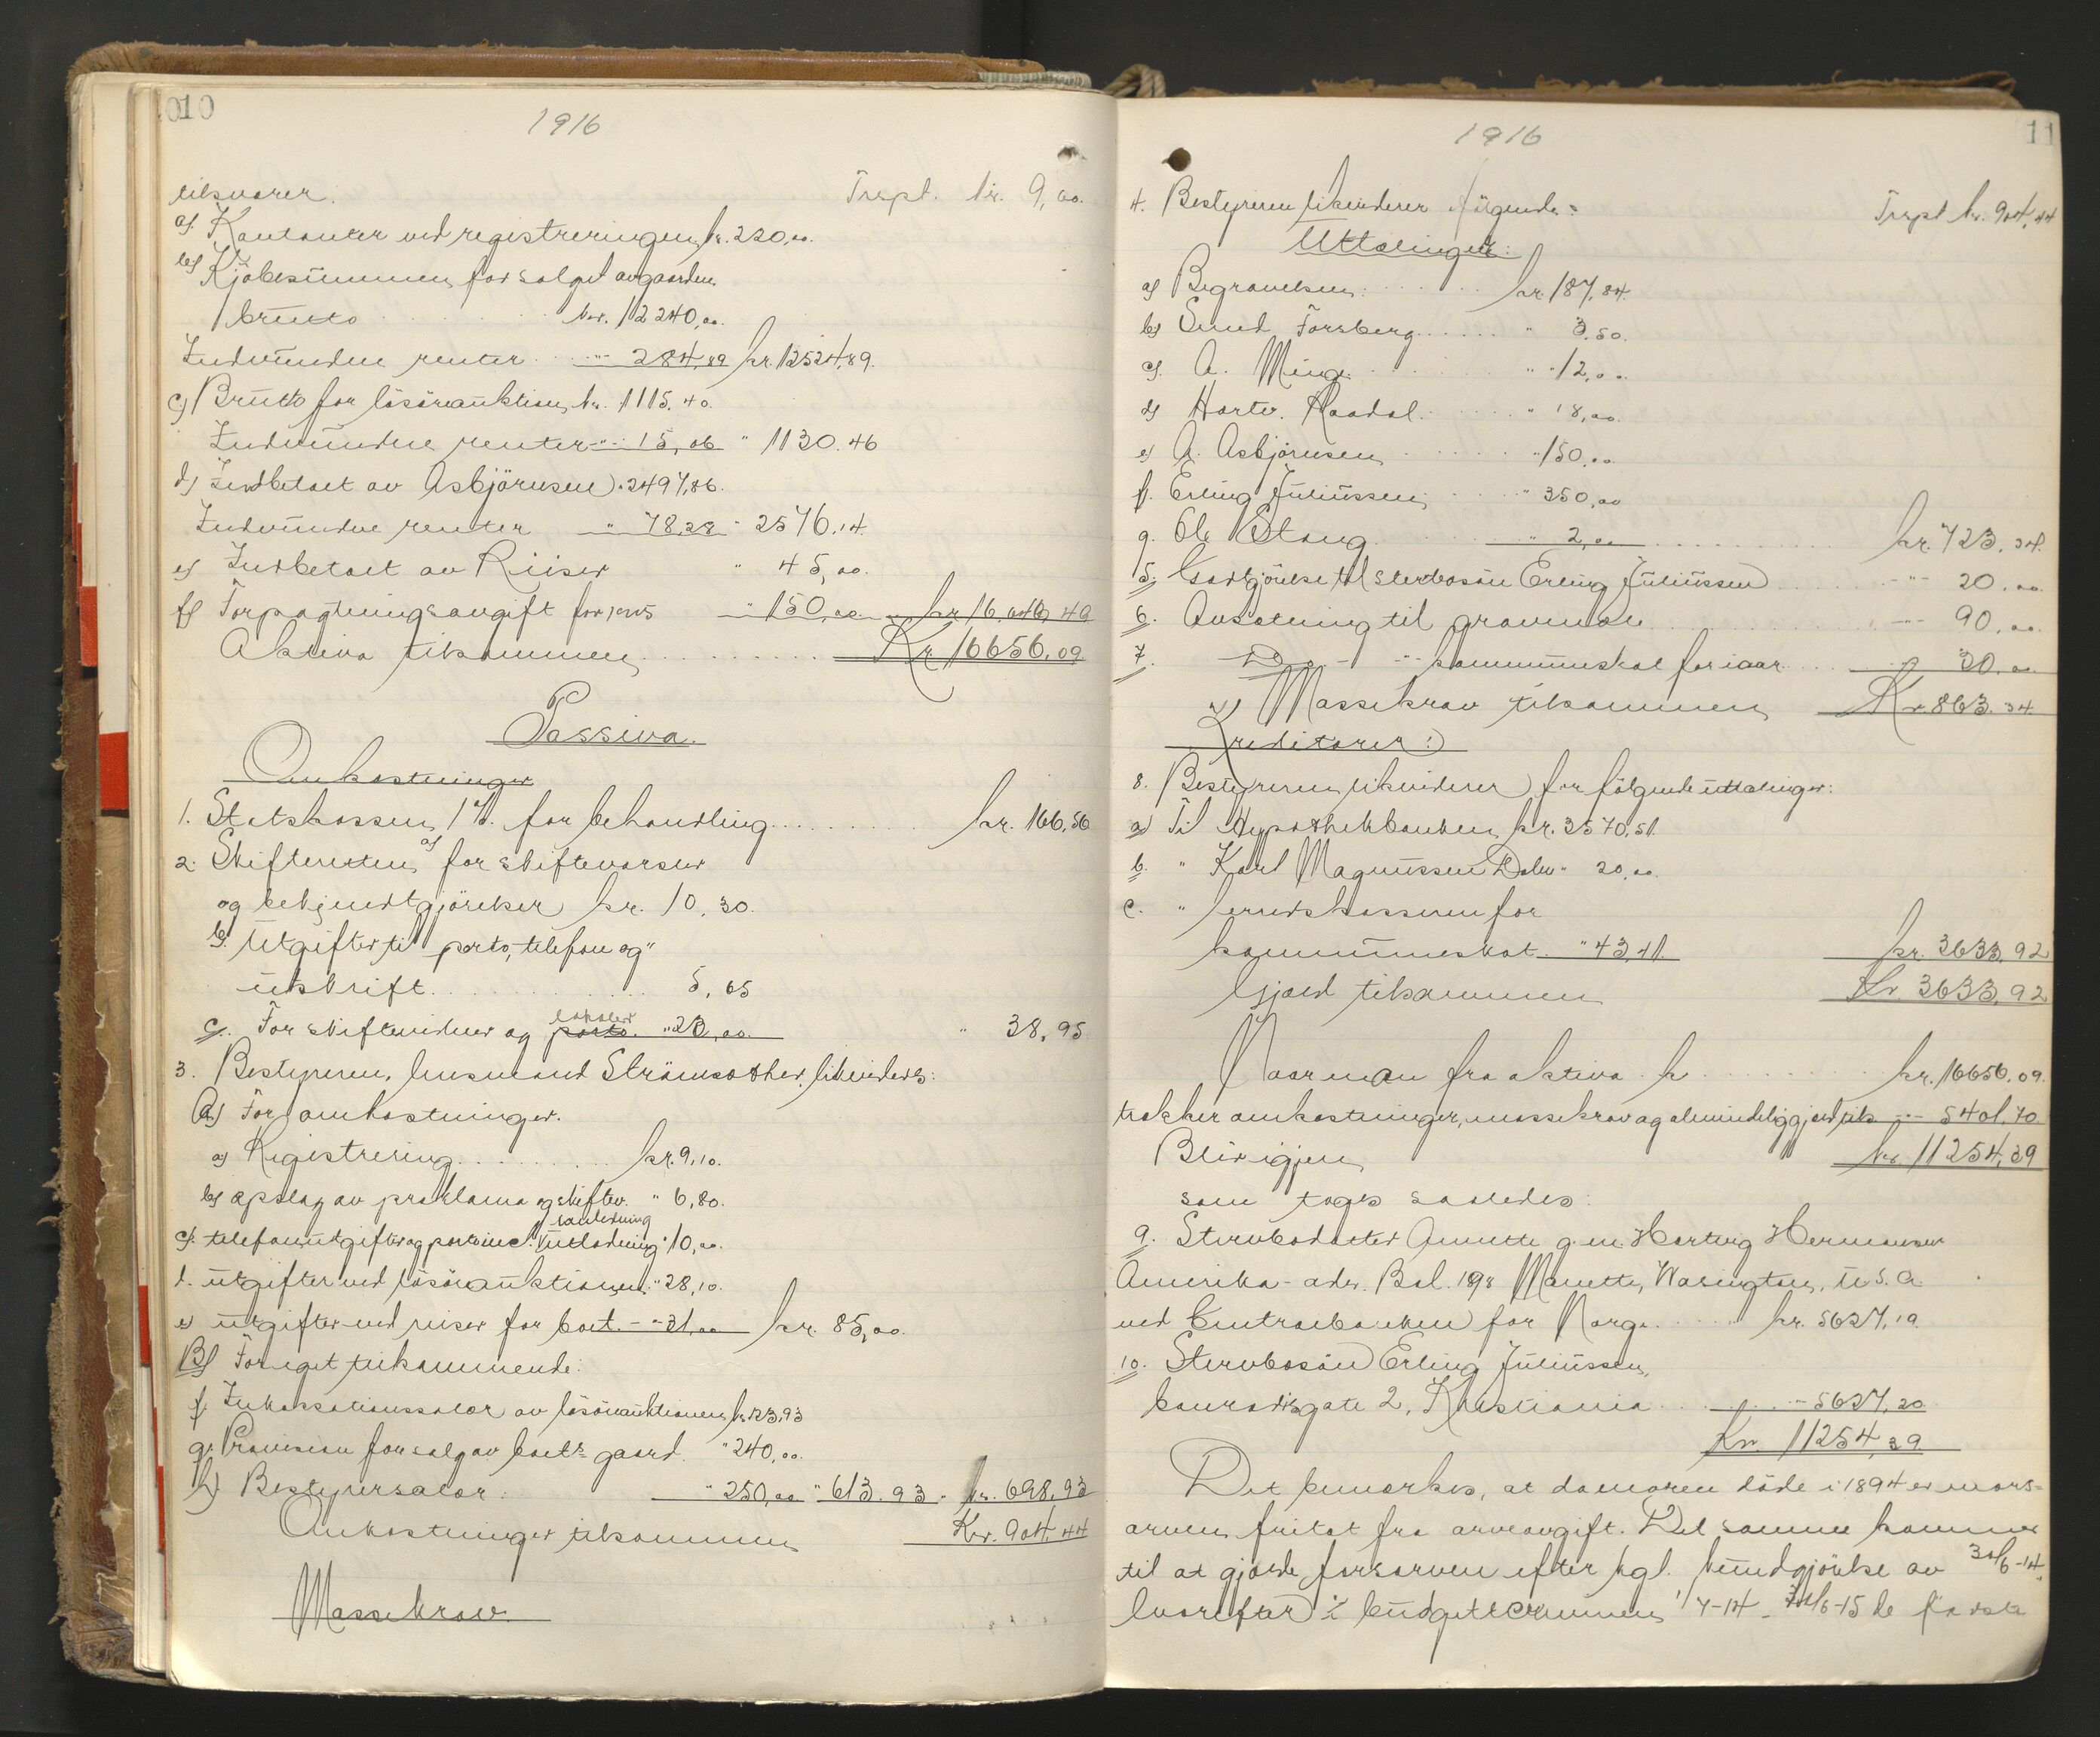 10
1916
tilsvarer. Trspt. kr. 9,00.
a) Kontanter ved registreringen kr. 220,00.
b) Kjöbesummen for salget av gaarden
brutto kr. 12240,00.
Indvundne renter - " - 284,89 kr. 12524,89.
c) Brutto for lösöreauktion kr. 1115.40.
Indvundne renter - " - 15,06 " 1130.46
d) Indbetalt av Asbjörnsen " 2497,86.
Indvundne renter " 78,28 " 2576.14.
e) Indbetalt av Riiser " 45,00.
f) Forpagtningsavgift for 1915 " 150,00 kr. 16,646,49
Aktiva tilsammen Kr. 16656,09
Passiva.
Omkostninger
1. Statskassen 1% for behandling kr. 166,56
2. Skifteretten a) for skiftevarsler
og bekjendtgjörelser kr. 10,30.
b. Utgifter til porto, telefon og "
utskrift 5,65
c. For skiftevidner og porto. lokaler " 23,00. " 38,95
3. Bestyreren, lensmand Strömsæther, likvideres:
A) For omkostninger.
a) Registrering kr. 9,10.
b) opslag av proklama og skiftev. " 6,80.
c). telefonutgifter og porto incl. i anledning utlodning " 10,00.
d. utgifter ved lösöreauktionen. " 28,10.
e) utgifter ved reiser for boet. - " - 31,00 kr. 85,00.
B) For eget tilkommende:
f. Inkassationssalær av lösöreauktionen kr. 123,93
g. Provision for salg av boets gaard. " 240,00.
h) Bestyrersalær. " 250,00 " 613.93 " kr. 698,93
Omkostninger tilsammen Kr. 904,44
Massekrav.
11
1916
4. Bestyreren likviderer fölgende: Trspt kr. 904,44
Uttællinger:
a) Begravelsen: kr. 187,84.
b) Smed Forsberg " 3,50.
c). A. Minge " 12,00.
d) Hartv. Raadal. " 18,00.
e) A. Asbjörnsen " 150,00
f. Erling Juliussen " 350,00
g. Ole Stang " 2,00 kr. 723.34.
5. Godtgjörelse til sterbosön Erling Juliussen - " - 20.00.
6. Avsætning til gravmæle - " - 90.00.
7. Do - " - kommuneskat for iaar - " - 30.00.
Massekrav tilsammen Kr. 863.34.
Kreditorer:
8. Bestyreren likviderer for fölgende uttællinger:
a) Til Hypothekbanken kr. 3570,51.
b. " Karl Magnussen Dalen " 20,00.
c. " herredskasseren for
kommuneskat. " 43,41. kr. 3633,92
Gjæld tilsammen Kr. 3633,92
Naar man fra aktiva kr. 16656.09.
trækker omkostninger, massekrav og almindelig gjæld tils. - " - 5401.70.
Blir igjen kr. 11254,39
som tages saaledes:
9. Stervbodatter Annette g. m. Hartvig Hermansen
Amerika - adr. Bol. 198 Manette, Wasington, U. S. A.
ved Centralbanken for Norge kr. 5627,19.
10. Stervbosön Erling Juliussen,
Conradisgate 2, Kristiania - " - 5627,20
Kr. 11254,39
Det bemærkes, at da moren döde i 1894 er mors=
arven fritat fra arveavgift. Det samme kommer
til at gjælde farsarven efter kgl. kundgjörelse av 30/6-14.
hvorefter i budgetterminen 1/7-14 - 30/6-15 de förste